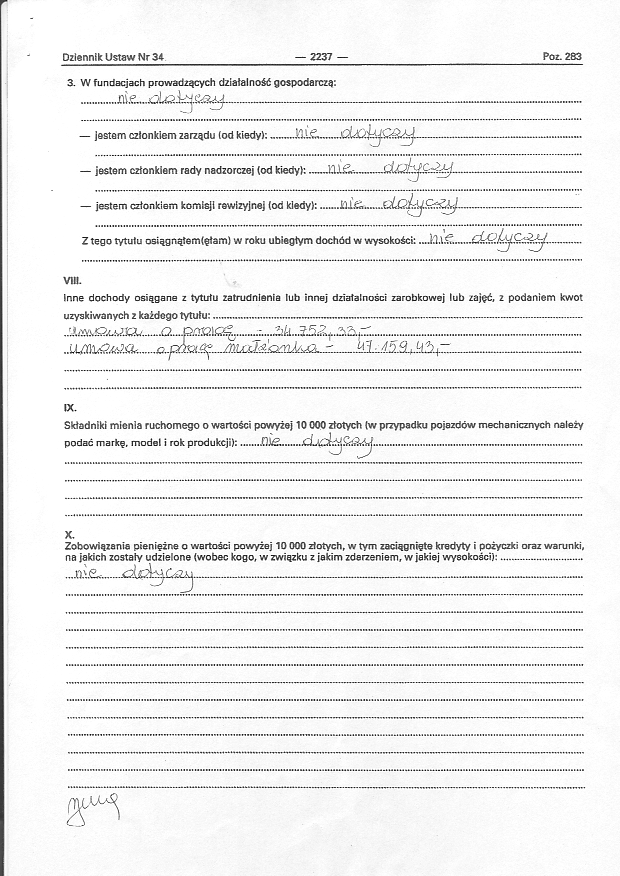 Dziennik Ustaw Nr 34 — 2237 — Poz. 283
3. W fundacjach prowadzących działalność gospodarczą:
nie dotyczy
— jestem członkiem zarządu (od kiedy): nie dotyczy
— jestem członkiem rady nadzorczej (od kiedy): nie dotyczy
— jestem członkiem komisji rewizyjnej (od kiedy): nie dotyczy
Z tego tytułu osiągnąłem(ęłam) w roku ubiegłym dochód w wysokości: nie dotyczy
VIII.
Inne dochody osiągane z tytułu zatrudnienia lub innej działalności zarobkowej lub zajęć, z podaniem kwot
uzyskiwanych z każdego tytułu:
umowa o pracę - 34 752,33,-
umowa o pracę małżonka - 47.159,43,-
IX.
Składniki mienia ruchomego o wartości powyżej 10 000 złotych (w przypadku pojazdów mechanicznych należy
podać markę, model i rok produkcji): nie dotyczy
X.
Zobowiązania pieniężne o wartości powyżej 10 000 złotych, w tym zaciągnięte kredyty i pożyczki oraz warunki,
na jakich zostały udzielone (wobec kogo, w związku z jakim zdarzeniem, w jakiej wysokości):
nie dotyczy